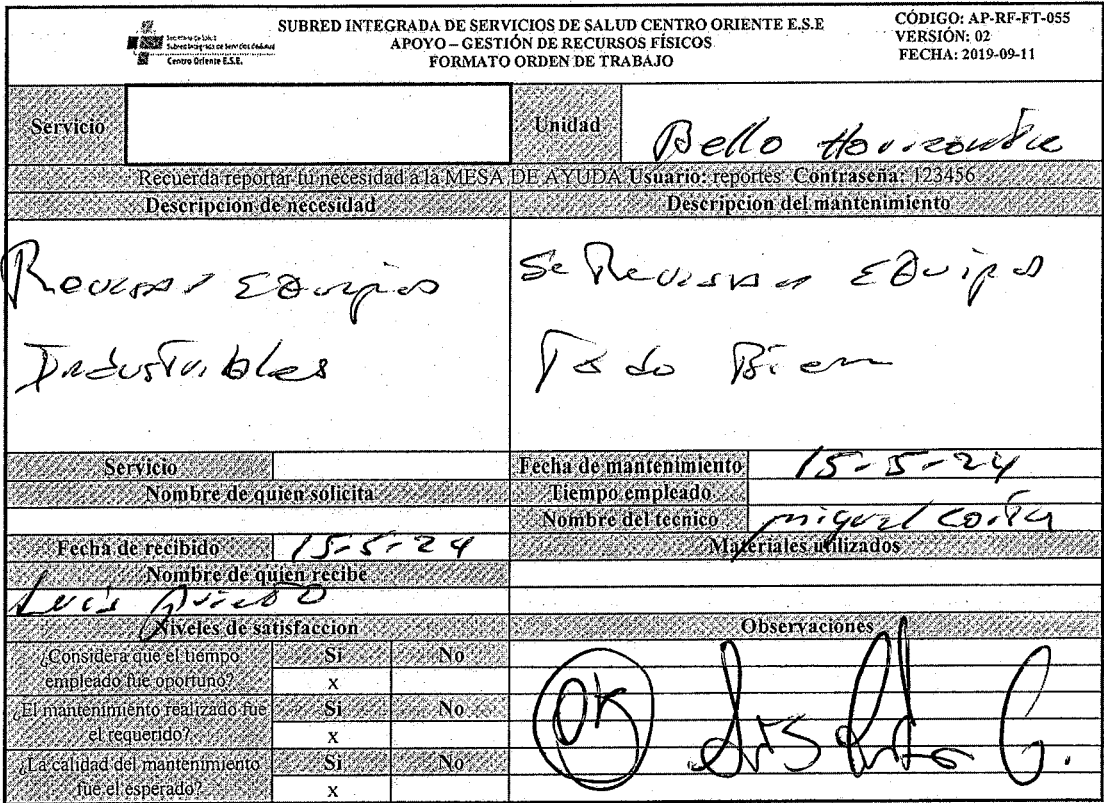 Secretaría de Salud
Subred Integrada de Servicios de Salud
Centro Oriente E.S.E.
SUBRED INTEGRADA DE SERVICIOS DE SALUD CENTRO ORIENTE E.S.E
APOYO – GESTIÓN DE RECURSOS FÍSICOS
FORMATO ORDEN DE TRABAJO
CÓDIGO: AP-RF-FT-055
VERSIÓN: 02
FECHA: 2019-09-11
Servicio
Unidad
Bello Horizonte
Recuerda reportar tu necesidad a la MESA DE AYUDA Usuario: reportes Contraseña: 123456
Descripcion de necesidad
Equipos
Industribles
Descripcion del mantenimiento
Se Equipos
Todo Bien
Servicio
Nombre de quien solicita
Fecha de recibido 15-5-24
Nombre de quien recibe
Luis
Fecha de mantenimiento 15-5-24
Tiempo empleado
Nombre del tecnico miguel
Materiales utilizados
Niveles de satisfaccion
¿Considera que el tiempo
empleado fue oportuno?
Si No
x
¿El mantenimiento realizado fue
el requerido?
Si No
x
¿La calidad del mantenimiento
fue el esperado?
Si No
x
Observaciones
OK